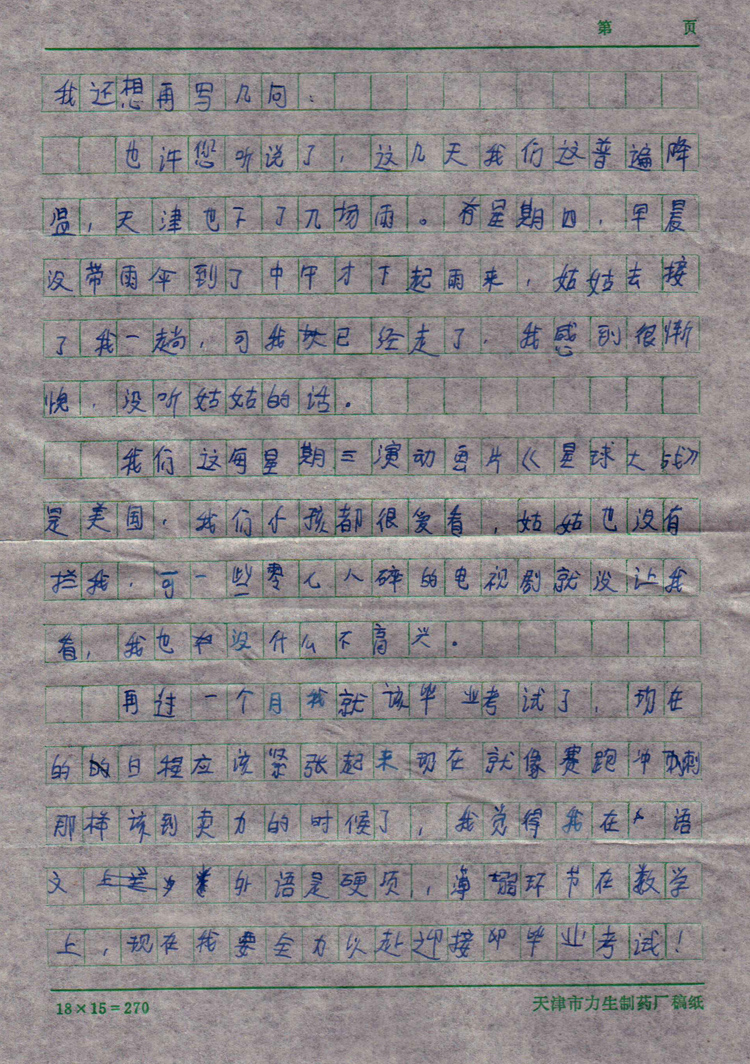 第 页
我还想再写几句：
也许您听说了，这几天我们这普遍降
温，天津也下了几场雨。有星期四，早晨
没带雨伞到了中午才下起雨来，姑姑去接
了我一趟，可我已经走了，我感到很惭
愧，没听姑姑的话。
我们这每星期三演动画片《星球大战》
是美国，我们小孩都很爱看，姑姑也没有
拦我，可一些零七八碎的电视剧就没让我
看，我也没什么不高兴。
再过一个月我就该毕业考试了，现在
的日程应该紧张起来现在就像赛跑冲刺
那样该到卖力的时候了，我觉得我在语
文上外语是硬项，薄弱环节在数学
上，现在我要全力以赴迎接毕业考试！
18×15＝270
天津市力生制药厂稿纸